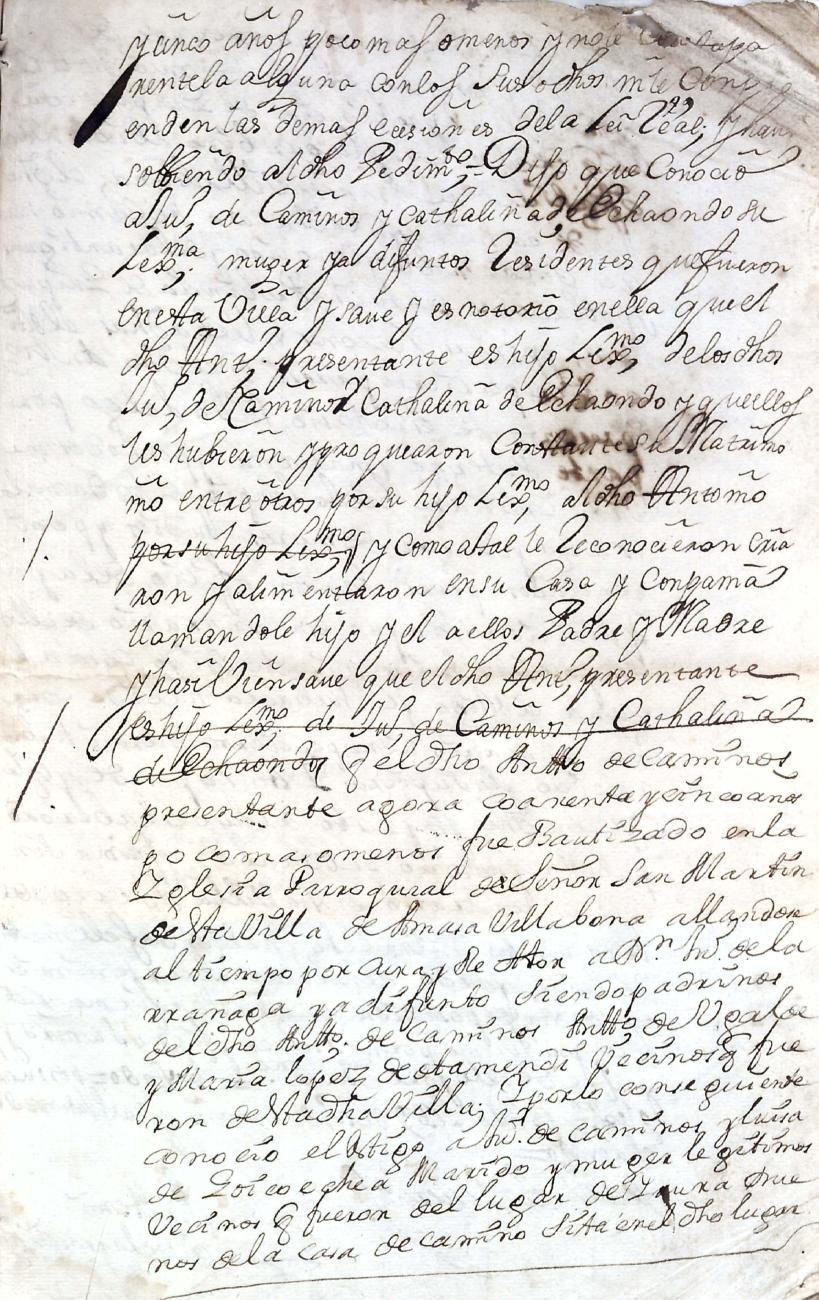 y cinco años poco mas o menos y no le
rentela alguna con los susodhos ni le
enden las demas ecesiones de la Lei Real; y hau
solbiendo al dho Pedimto; Dijo que Conocio
a Ju, de Caminos y Cathalina de Echaondo su
Lexma; muger ya difuntos Residentes que fueron
en esta Villa y save y es notorio en ella que el
dho Ant, presentante es hijo Lexmo, de los dhos
Ju, de Caminos y Cathalina de Echaondo y que ellos
les hubieron y proquearon Constante su Matrimo
nio entre otros por su hijo Lexmo, al dho Antonio
por su hijo Lexmo, y como a tal le Reconocieron cria
ron y alimentaron en su Casa y Conpania
llamandole hijo y el a ellos Padre y Madre
y hasi Vien save que el dho Ant, presentante
es hijo Lexmo, de Ju, de Caminos y Cathalina
de Echaondo q el dho Antto de Caminos
presentante agora coarenta y cinco años
poco mas o menos fue Bautizado en la
Iglesia Parroquial de Señor San Martin
desta Villa de Amasa Villabona allandose
al tiempo por cura y Rettor a Dn Ju. de la
rrañaga ya difunto siendo padrinos
del dho Antto. de Caminos Antto de Ugalde
y Maria lopez de otamendi Vecinos q fue
ron desta dha Villa; Y por lo conseguiente
conocio el testigo a Ju. de Caminos y luisa
de Goicoechea Marido y muger legitimos
Vecinos q fueron del lugar de Yrura Due
nos de la casa de camino sita en el dho lugar